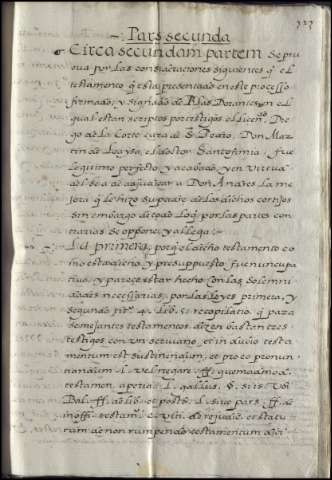 323
Pars secunda
Circa secundam partem se prue
ua por las consideraciones siguientes q̃ el
testamento q̃ esta presentado en este processo
firmado, y signado de Blas Dorantes en el
qual estan scriptos por testigos el licen.do Die
go de la Corte cura de S. Pedro, Don Mar
tin de Loaysa, el doctor Santofimia, fue
legitimo perfecto y acabado, y en virtud
del se a de adjudicar a Don Andres la me
jora q̃ le hizo su padre de los dichos cortijos
sin embargo de todo lo q̃ por las partes con
trarias se oppone, y allega:
Lo primero, porq̃ el dicho testamento co
mo esta dicho, y presuppuesto, fue nuncupa
tiuo, y parece estar hecho con las solemni
dades necessarias, por las leyes primera, y
segunda tit.º 4. lib. 5. recopilatio. q̃ para
semejantes testamentos dizen bastan tres
testigos con un escriuano, et in dubio testa
mentum est sustinendum, et pro eo pronun
tiandum l. vel negare ff. quemadmodũ
testamen. aperia. l. gallus, §. si is
Bal. ff. de lib. et posth. l. siue pars ff. de
inoffi. testam.
rum de non rumpendo testamentum